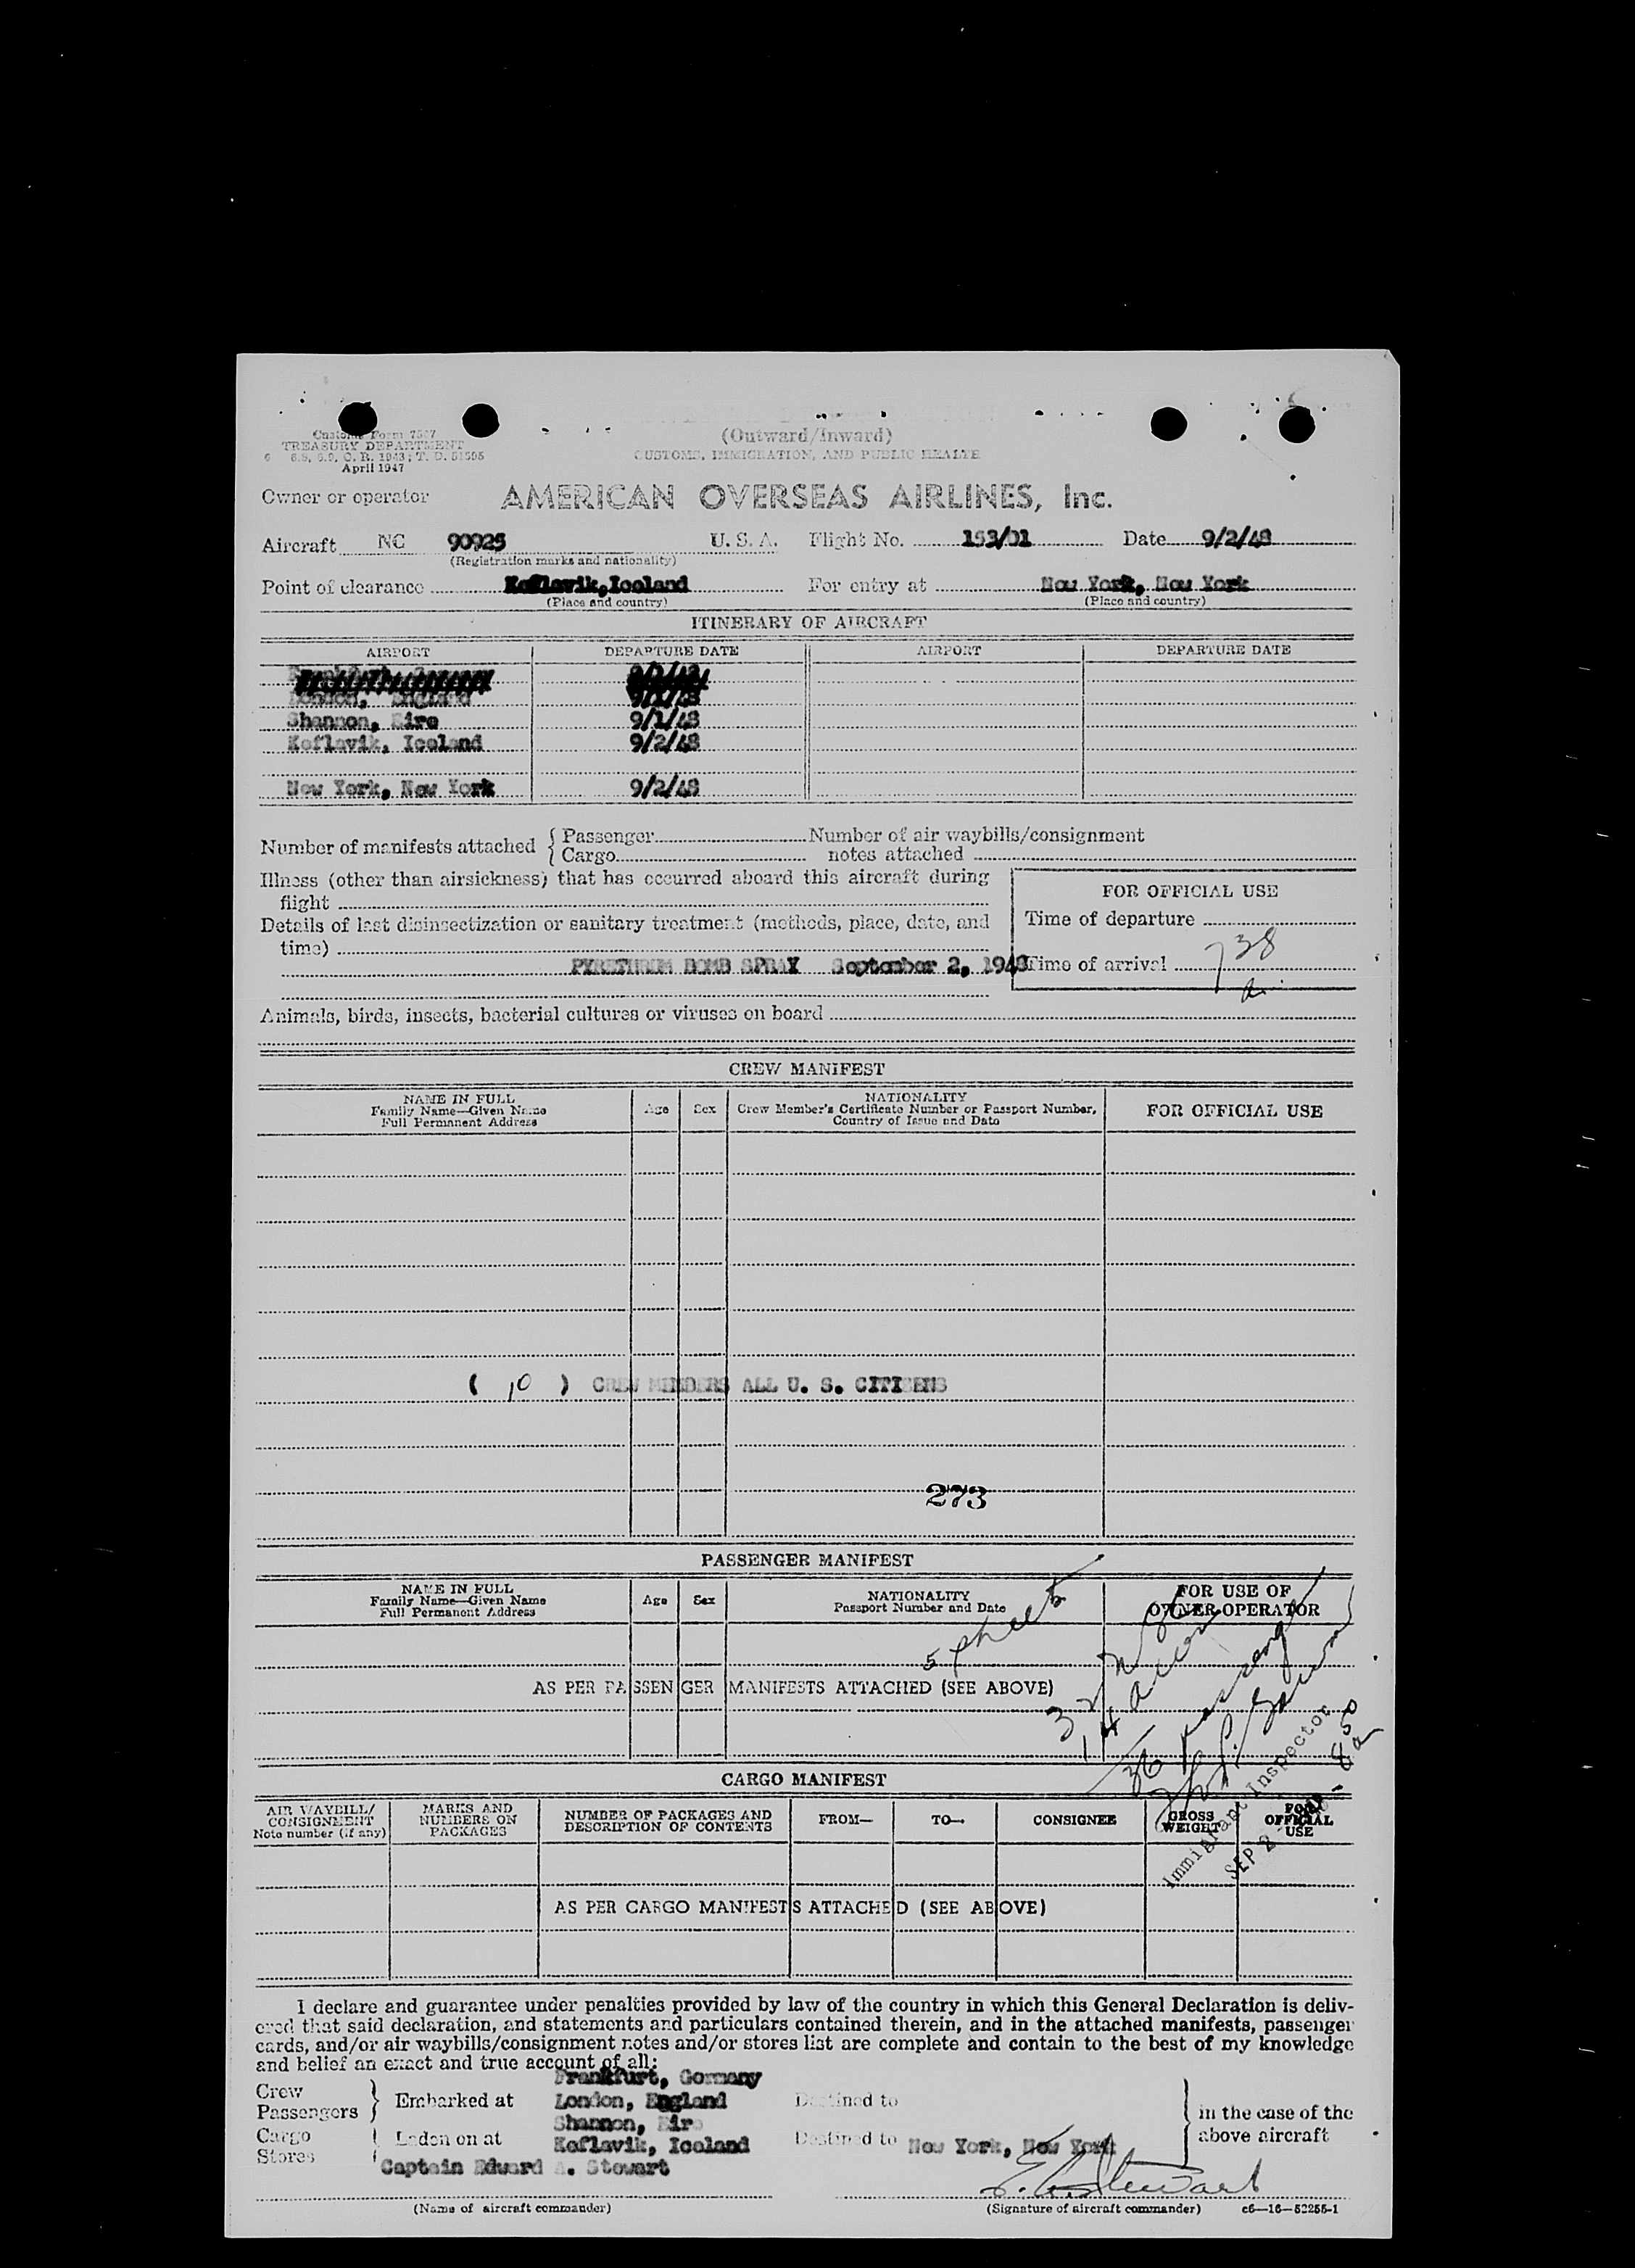 (Outward/Inward)
CUSTOMS, IMMIGRATION, AND PUBLIC HEALTH
Customs Form 7507
TREASURY DEPARTMENT
6.8, 6.9, C. R. 1943; T. D. 51595
April 1947
Owner or operator AMERICAN OVERSEAS AIRLINES, Inc.
Aircraft NC 90925 U. S. A. Flight No. 153/01 Date 9/2/48
(Registration marks and nationality)
Point of clearance Keflavik, Iceland For entry at New York, New York
(Place and country) (Place and country)
ITINERARY OF AIRCRAFT
AIRPORT DEPARTURE DATE AIRPORT DEPARTURE DATE
London, England 9/1/48
Shannon, Eire 9/1/48
Keflavik, Iceland 9/2/48
New York, New York 9/2/48
Number of manifests attached { Passenger Number of air waybills/consignment
{ Cargo notes attached
Illness (other than airsickness) that has occurred aboard this aircraft during
flight
FOR OFFICIAL USE
Details of last disinsectization or sanitary treatment (methods, place, date, and
time)
Time of departure
PYRETHRUM BOMB SPRAY September 2, 1948 Time of arrival 738
a.
Animals, birds, insects, bacterial cultures or viruses on board
CREW MANIFEST
NAME IN FULL
Family Name—Given Name
Full Permanent Address
Age Sex
NATIONALITY
Crew Member's Certificate Number or Passport Number,
Country of Issue and Date
FOR OFFICIAL USE
( 10 ) CREW MEMBERS ALL U. S. CITIZENS
273
PASSENGER MANIFEST
NAME IN FULL
Family Name—Given Name
Full Permanent Address
Age Sex
NATIONALITY
Passport Number and Date
FOR USE OF
OWNER OPERATOR
5 sheets
AS PER PASSENGER MANIFESTS ATTACHED (SEE ABOVE)
36 passengers
Immigrant Inspector
SEP 2
850
a
CARGO MANIFEST
AIR WAYBILL/
CONSIGNMENT
Note number (if any)
MARKS AND
NUMBERS ON
PACKAGES
NUMBER OF PACKAGES AND
DESCRIPTION OF CONTENTS
FROM— TO— CONSIGNEE
GROSS
WEIGHT
FOR
OFFICIAL
USE
AS PER CARGO MANIFESTS ATTACHED (SEE ABOVE)
I declare and guarantee under penalties provided by law of the country in which this General Declaration is deliv-
ered that said declaration, and statements and particulars contained therein, and in the attached manifests, passenger
cards, and/or air waybills/consignment notes and/or stores list are complete and contain to the best of my knowledge
and belief an exact and true account of all:
Frankfurt, Germany
Crew
Passengers } Embarked at London, England Destined to in the case of the
Shannon, Eire
Cargo
Stores { Laden on at Keflavik, Iceland Destined to New York, New York above aircraft
Captain Edward A. Stewart E. A. Stewart
(Name of aircraft commander) (Signature of aircraft commander) c6—16—52255-1